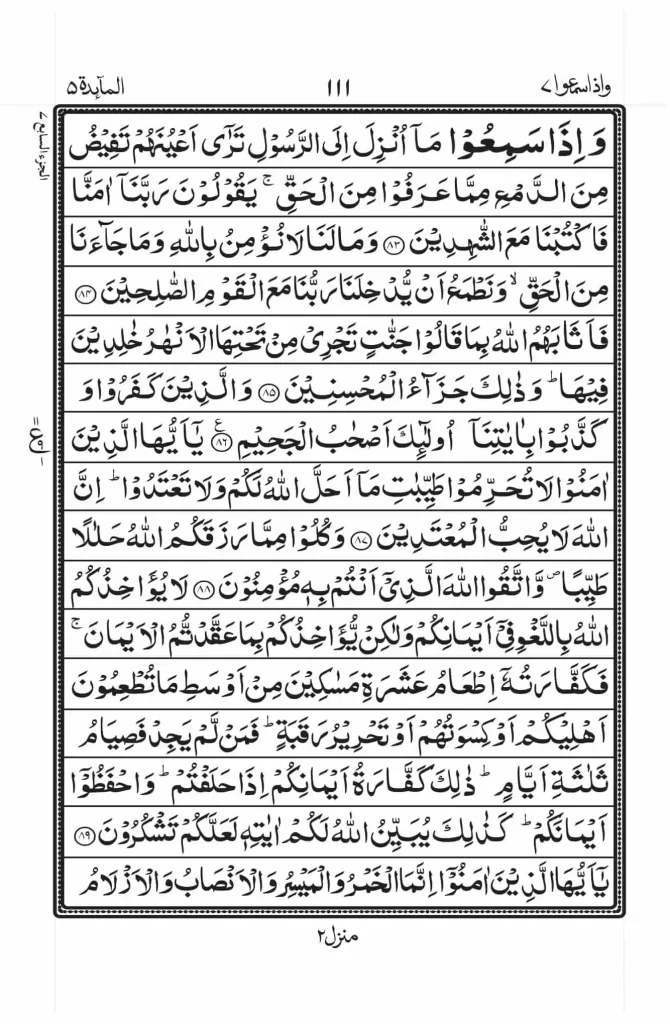 واذاسمعوا ٧ ١١١ المآىِٕدة ٥
وَ اِذَا سَمِعُوْا مَاۤ اُنْزِلَ اِلَى الرَّسُوْلِ تَرٰۤى اَعْیُنَهُمْ تَفِیْضُ
مِنَ الدَّمْعِ مِمَّا عَرَفُوْا مِنَ الْحَقِّ ۚ یَقُوْلُوْنَ رَبَّنَاۤ اٰمَنَّا
فَاكْتُبْنَا مَعَ الشّٰهِدِیْنَ ﴿٨٣﴾ وَمَا لَنَا لَا نُؤْمِنُ بِاللّٰهِ وَمَا جَآءَنَا
مِنَ الْحَقِّ ۙ وَنَطْمَعُ اَنْ یُّدْخِلَنَا رَبُّنَا مَعَ الْقَوْمِ الصّٰلِحِیْنَ ﴿٨٤﴾
فَاَثَابَهُمُ اللّٰهُ بِمَا قَالُوْا جَنّٰتٍ تَجْرِیْ مِنْ تَحْتِهَا الْاَنْهٰرُ خٰلِدِیْنَ
فِیْهَا ؕ وَذٰلِكَ جَزَآءُ الْمُحْسِنِیْنَ ﴿٨٥﴾ وَالَّذِیْنَ كَفَرُوْا وَ
كَذَّبُوْا بِاٰیٰتِنَاۤ اُولٰٓىِٕكَ اَصْحٰبُ الْجَحِیْمِ ﴿٨٦﴾ ع یٰۤاَیُّهَا الَّذِیْنَ
اٰمَنُوْا لَا تُحَرِّمُوْا طَیِّبٰتِ مَاۤ اَحَلَّ اللّٰهُ لَكُمْ وَلَا تَعْتَدُوْا ؕ اِنَّ
اللّٰهَ لَا یُحِبُّ الْمُعْتَدِیْنَ ﴿٨٧﴾ وَكُلُوْا مِمَّا رَزَقَكُمُ اللّٰهُ حَلٰلًا
طَیِّبًا ۪ وَّاتَّقُوا اللّٰهَ الَّذِیْۤ اَنْتُمْ بِهٖ مُؤْمِنُوْنَ ﴿٨٨﴾ لَا یُؤَاخِذُكُمُ
اللّٰهُ بِاللَّغْوِ فِیْۤ اَیْمَانِكُمْ وَلٰكِنْ یُّؤَاخِذُكُمْ بِمَا عَقَّدْتُّمُ الْاَیْمَانَ ۚ
فَكَفَّارَتُهٗۤ اِطْعَامُ عَشَرَةِ مَسٰكِیْنَ مِنْ اَوْسَطِ مَا تُطْعِمُوْنَ
اَهْلِیْكُمْ اَوْ كِسْوَتُهُمْ اَوْ تَحْرِیْرُ رَقَبَةٍ ؕ فَمَنْ لَّمْ یَجِدْ فَصِیَامُ
ثَلٰثَةِ اَیَّامٍ ؕ ذٰلِكَ كَفَّارَةُ اَیْمَانِكُمْ اِذَا حَلَفْتُمْ ؕ وَاحْفَظُوْۤا
اَیْمَانَكُمْ ؕ كَذٰلِكَ یُبَیِّنُ اللّٰهُ لَكُمْ اٰیٰتِهٖ لَعَلَّكُمْ تَشْكُرُوْنَ ﴿٨٩﴾
یٰۤاَیُّهَا الَّذِیْنَ اٰمَنُوْۤا اِنَّمَا الْخَمْرُ وَالْمَیْسِرُ وَالْاَنْصَابُ وَالْاَزْلَامُ
الجزء السابع ٧
منزل ٢